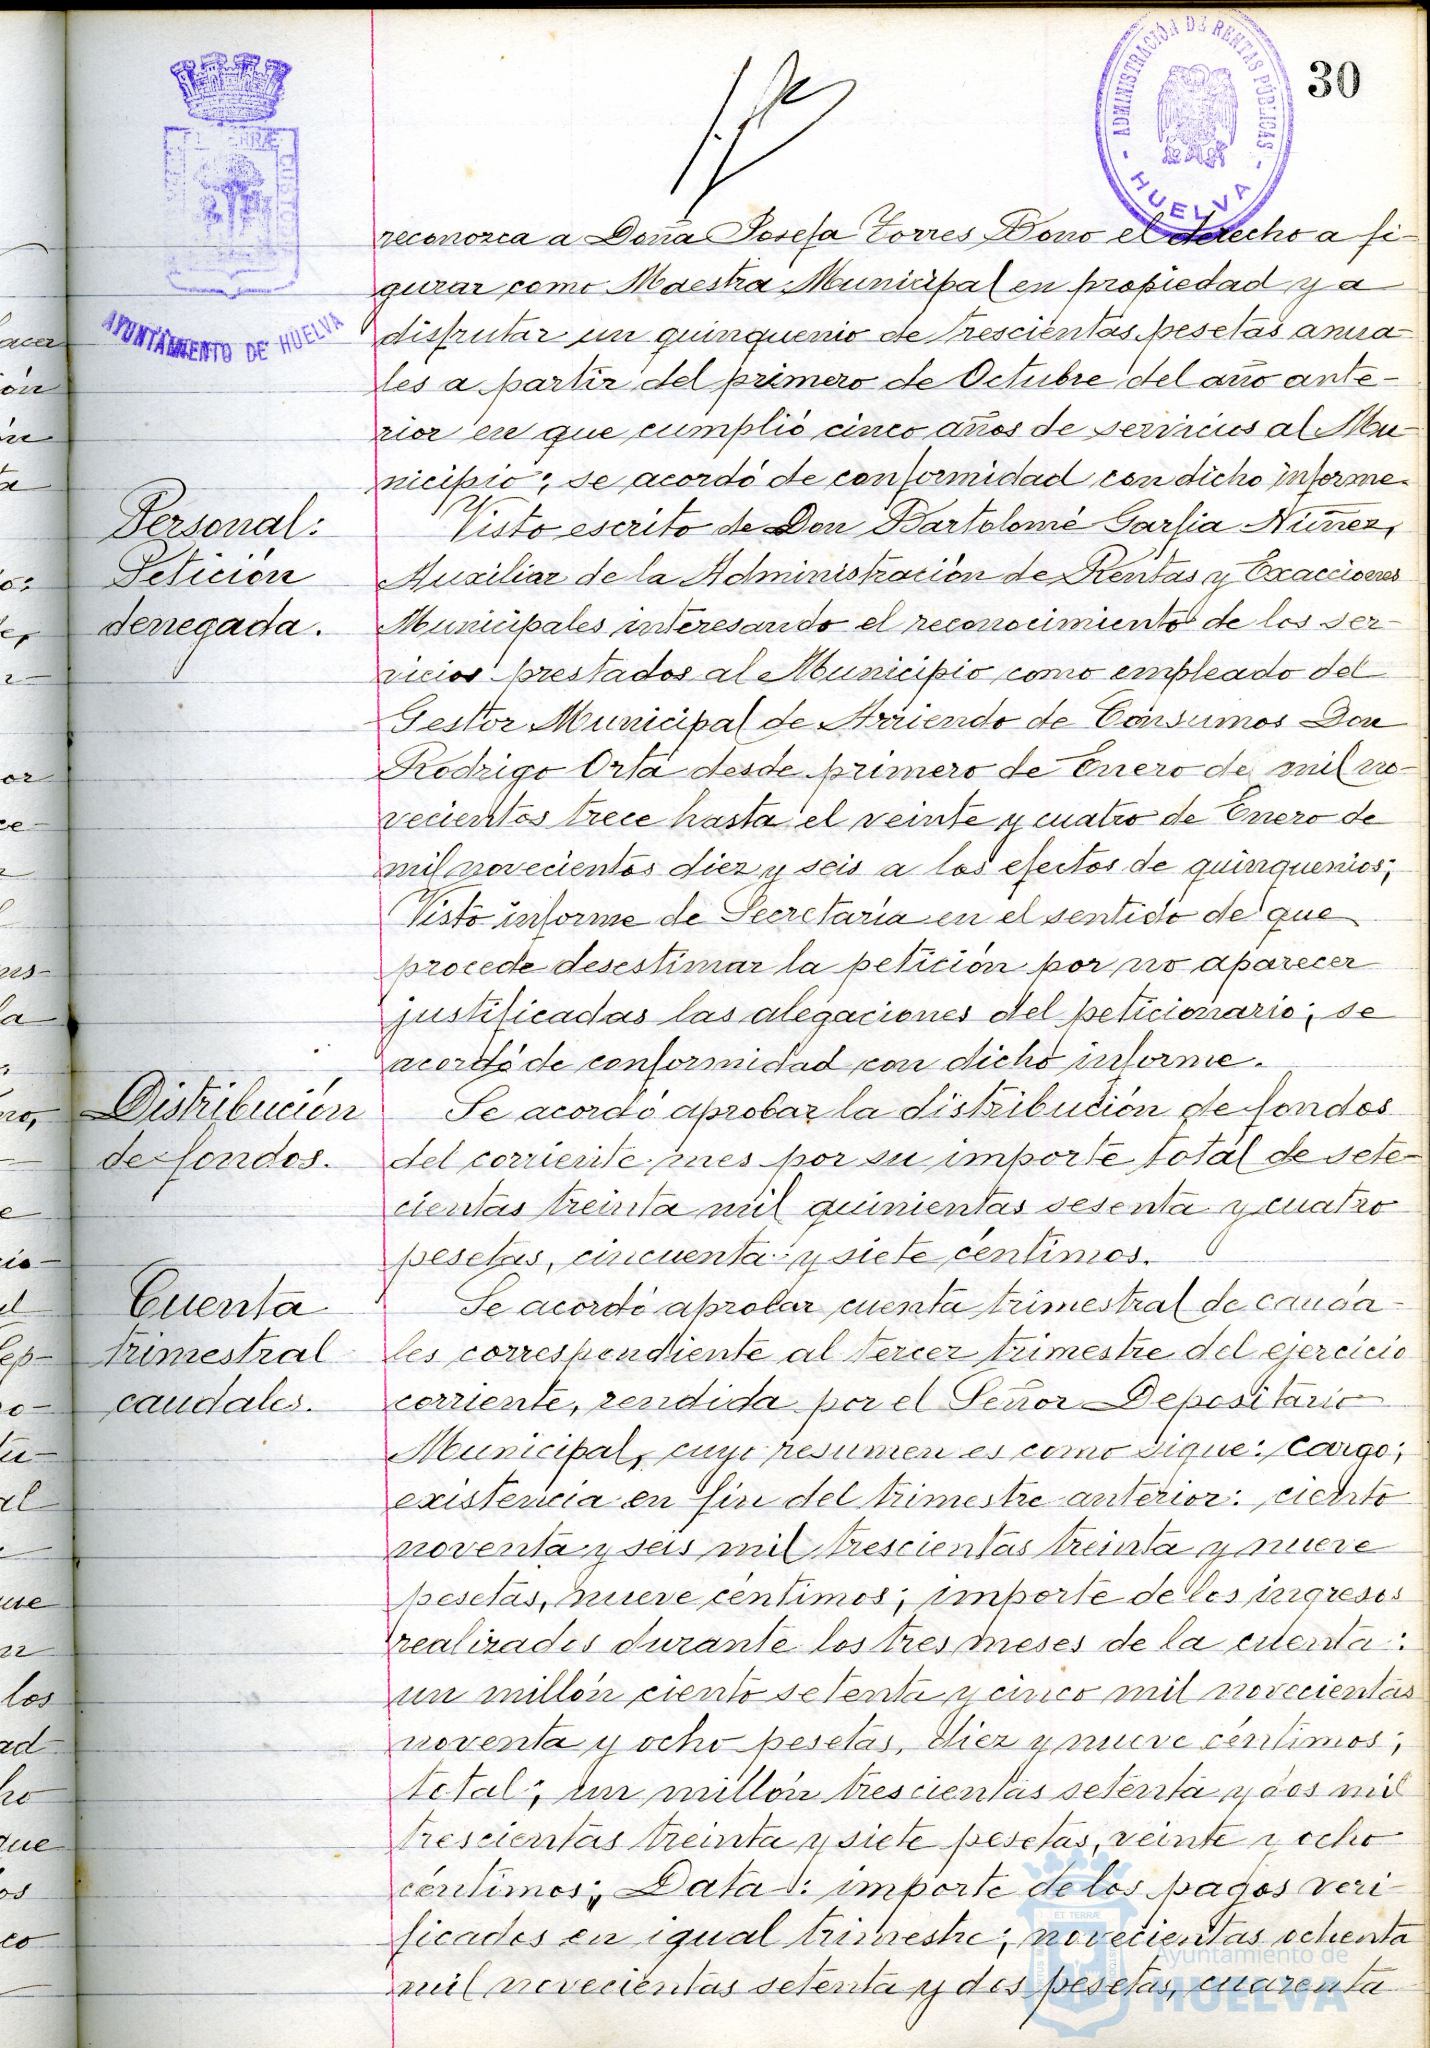 30
ADMINISTRACIÓN DE RENTAS PÚBLICAS
- HUELVA -
ET TERRÆ CUSTO
AYUNTAMIENTO DE HUELVA
reconozca a Doña Josefa Torres Bono el derecho a fi-
gurar como Maestra Municipal en propiedad y a
disfrutar un quinquenio de trescientas pesetas anua-
les a partir del primero de Octubre del año ante-
rior en que cumplió cinco años de servicios al Mu-
nicipio; se acordó de conformidad con dicho informe.
Personal:
Petición
denegada.
Visto escrito de Don Bartolomé Garfia Núñez,
Auxiliar de la Administración de Rentas y Exacciones
Municipales interesando el reconocimiento de los ser-
vicios prestados al Municipio como empleado del
Gestor Municipal de Arriendo de Consumos Don
Rodrigo Orta desde primero de Enero de mil no-
vecientos trece hasta el veinte y cuatro de Enero de
mil novecientos diez y seis a los efectos de quinquenios;
Visto informe de Secretaría en el sentido de que
procede desestimar la petición por no aparecer
justificadas las alegaciones del peticionario; se
acordó de conformidad con dicho informe.
Distribución
de fondos.
Se acordó aprobar la distribución de fondos
del corriente mes por su importe total de sete-
cientas treinta mil quinientas sesenta y cuatro
pesetas, cincuenta y siete céntimos.
Cuenta
trimestral
caudales.
Se acordó aprobar cuenta trimestral de cauda-
les correspondiente al tercer trimestre del ejercicio
corriente, rendida por el Señor Depositario
Municipal, cuyo resumen es como sigue: Cargo;
existencia en fin del trimestre anterior: ciento
noventa y seis mil trescientas treinta y nueve
pesetas, nueve céntimos; importe de los ingresos
realizados durante los tres meses de la cuenta:
un millón ciento setenta y cinco mil novecientas
noventa y ocho pesetas, diez y nueve céntimos;
total; un millón trescientas setenta y dos mil
trescientas treinta y siete pesetas, veinte y ocho
céntimos; Data: importe de los pagos veri-
ficados en igual trimestre; novecientas ochenta
mil novecientas setenta y dos pesetas, cuarenta
Ayuntamiento de
HUELVA